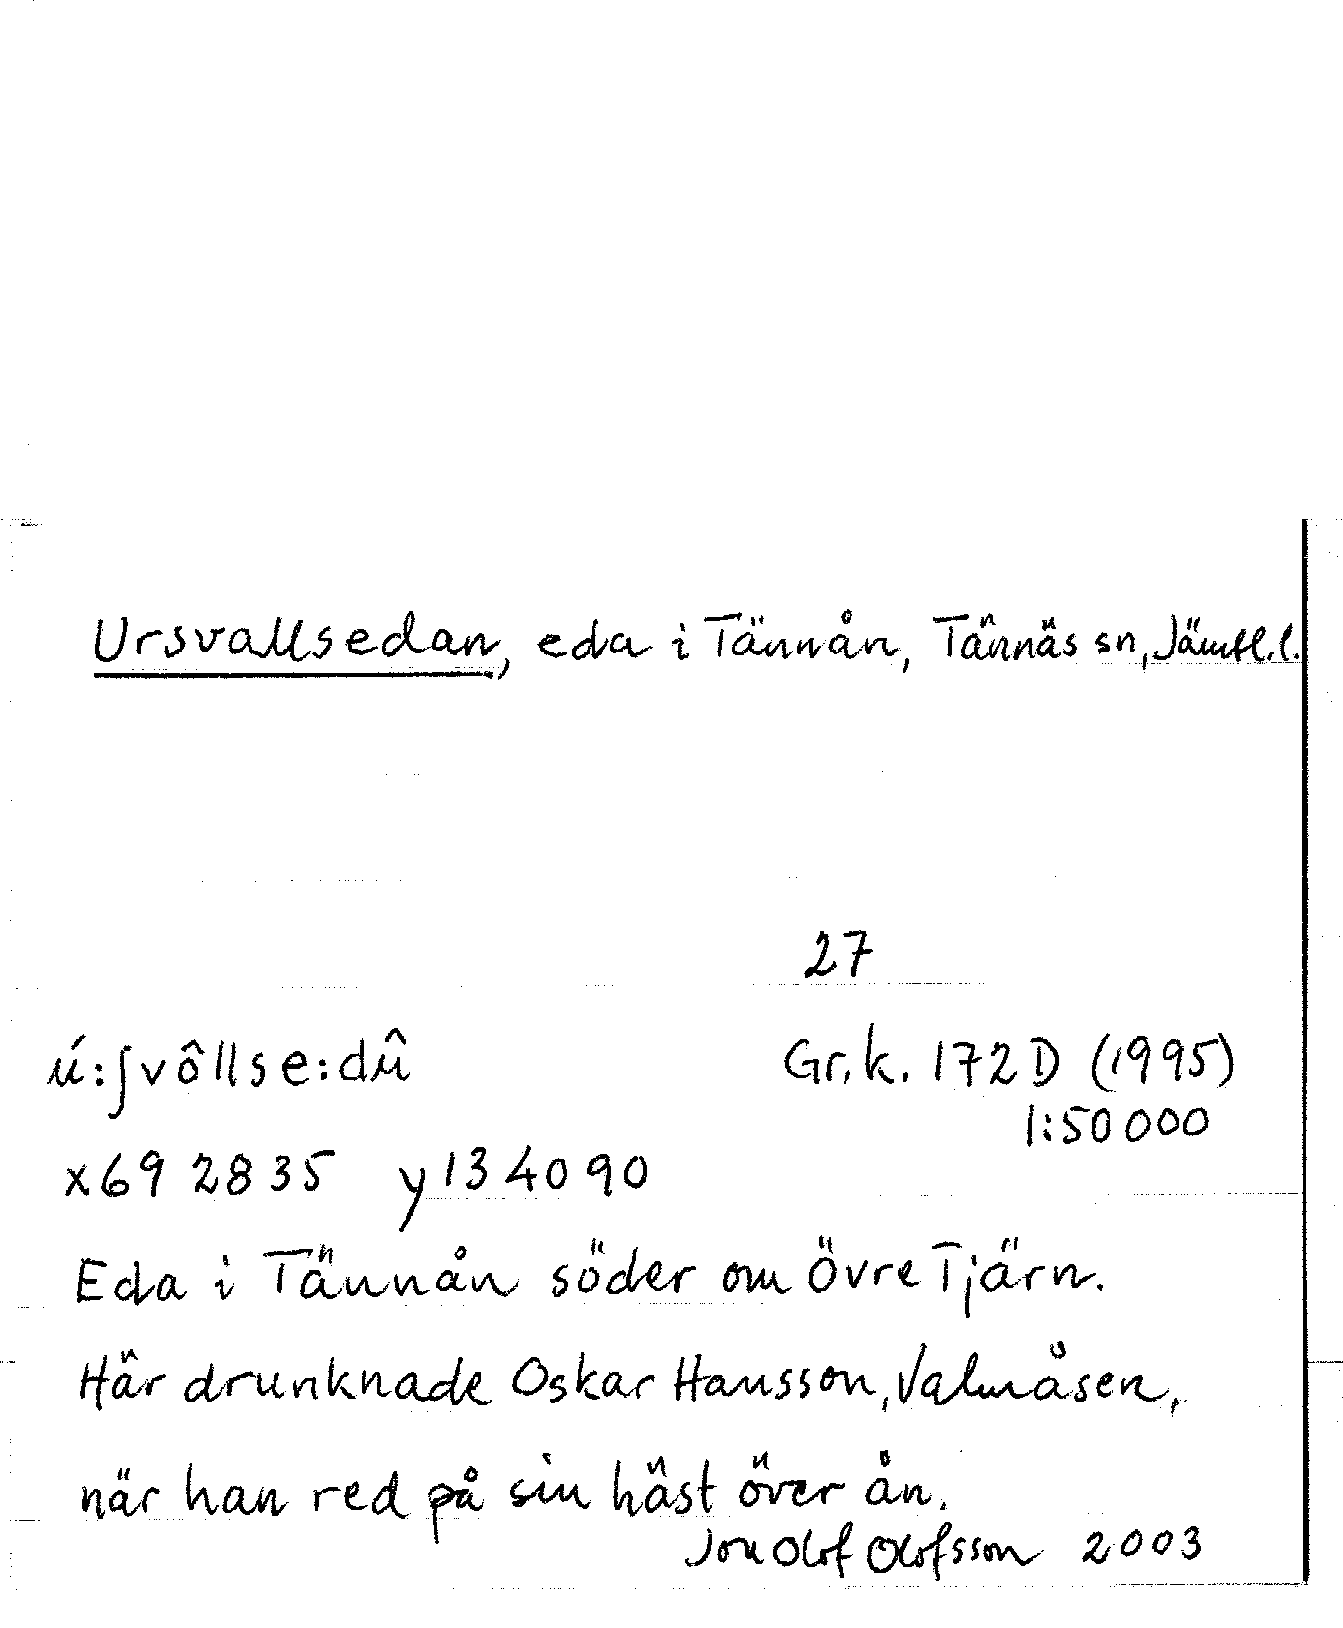 Ursvallsedan, eda i Tännån, Tännäs sn, Jämtl.l.
27
ú:ʃvôllse:dû Gr.k. 172D (1995)
1:50 000
x69 2835 y134090
Eda i Tännån söder om Övre Tjärn.
Här drunknade Oskar Hansson, Valmåsen,
när han red på sin häst över ån.
Jon Olof Olofsson 2003